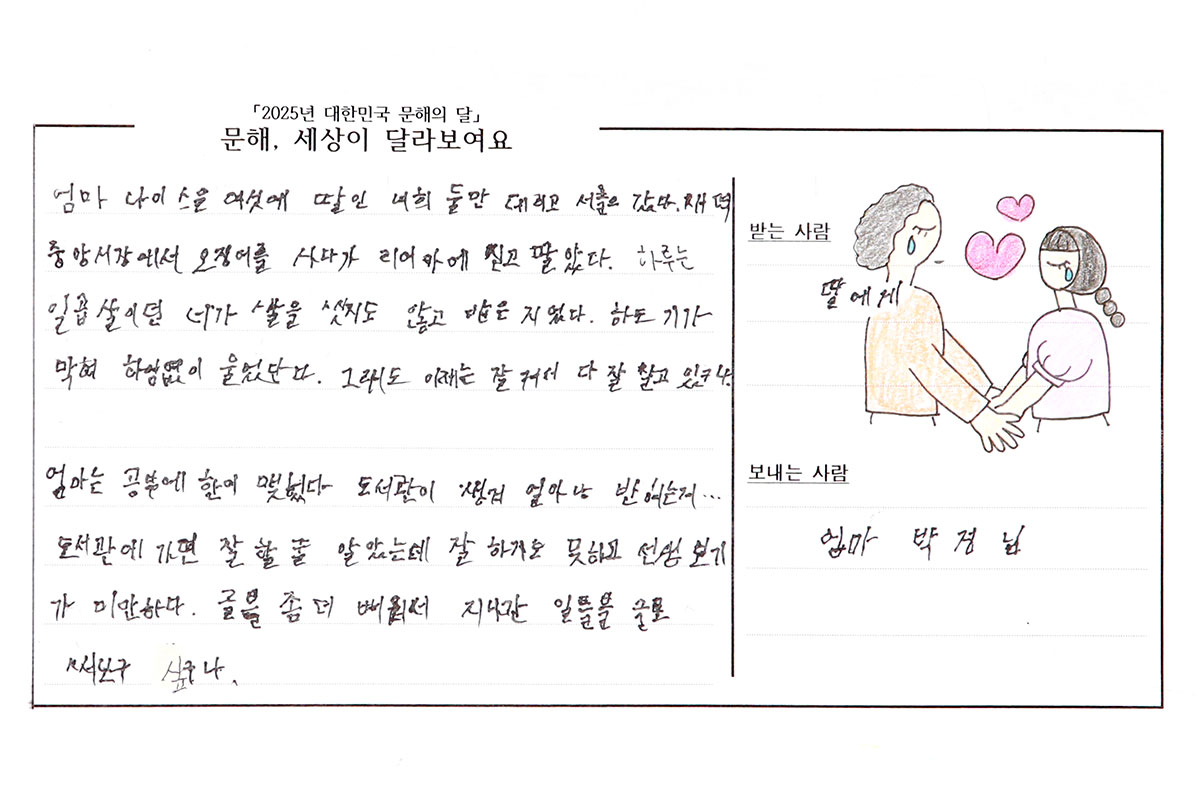 「2025년 대한민국 문해의 달」
문해, 세상이 달라보여요
엄마 나이 스믈 여섯에 딸인 너희 둘만 데리고 서울로 갔다. 새벽
중앙시장에서 오징어를 사다가 리어카에 싣고 팔았다. 하루는
일곱살이던 네가 쌀을 씻지도 않고 밥은 지었다. 하도 기가
막혀 하염없이 울었단다. 그래도 이제는 잘 커서 다 잘 살고 있구나.
엄마는 공부에 한이 맺혔다 도서관이 생겨 얼마나 반가운지...
도서관에 가면 잘 할 줄 알았는데 잘 하지도 못하고 선생 보기
가 미안하다. 글을 좀 더 배워서 지나간 일들을 글로
써보구 싶구나.
받는 사람
딸에게
보내는 사람
엄마 박경님